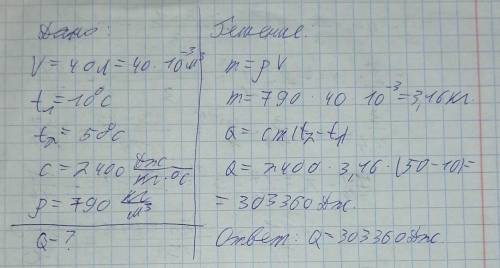 Дано:
V = 40 л = 40 · 10⁻³ м³
t₁ = 10°C
t₂ = 50°C
c = 2400 Дж/кг·°C
ρ = 790 кг/м³
Q - ?
Решение.
m = ρV
m = 790 · 40 · 10⁻³ = 3,16 кг.
Q = cm(t₂-t₁)
Q = 2400 · 3,16 · (50-10) =
= 303360 Дж.
Ответ: Q = 303360 Дж.